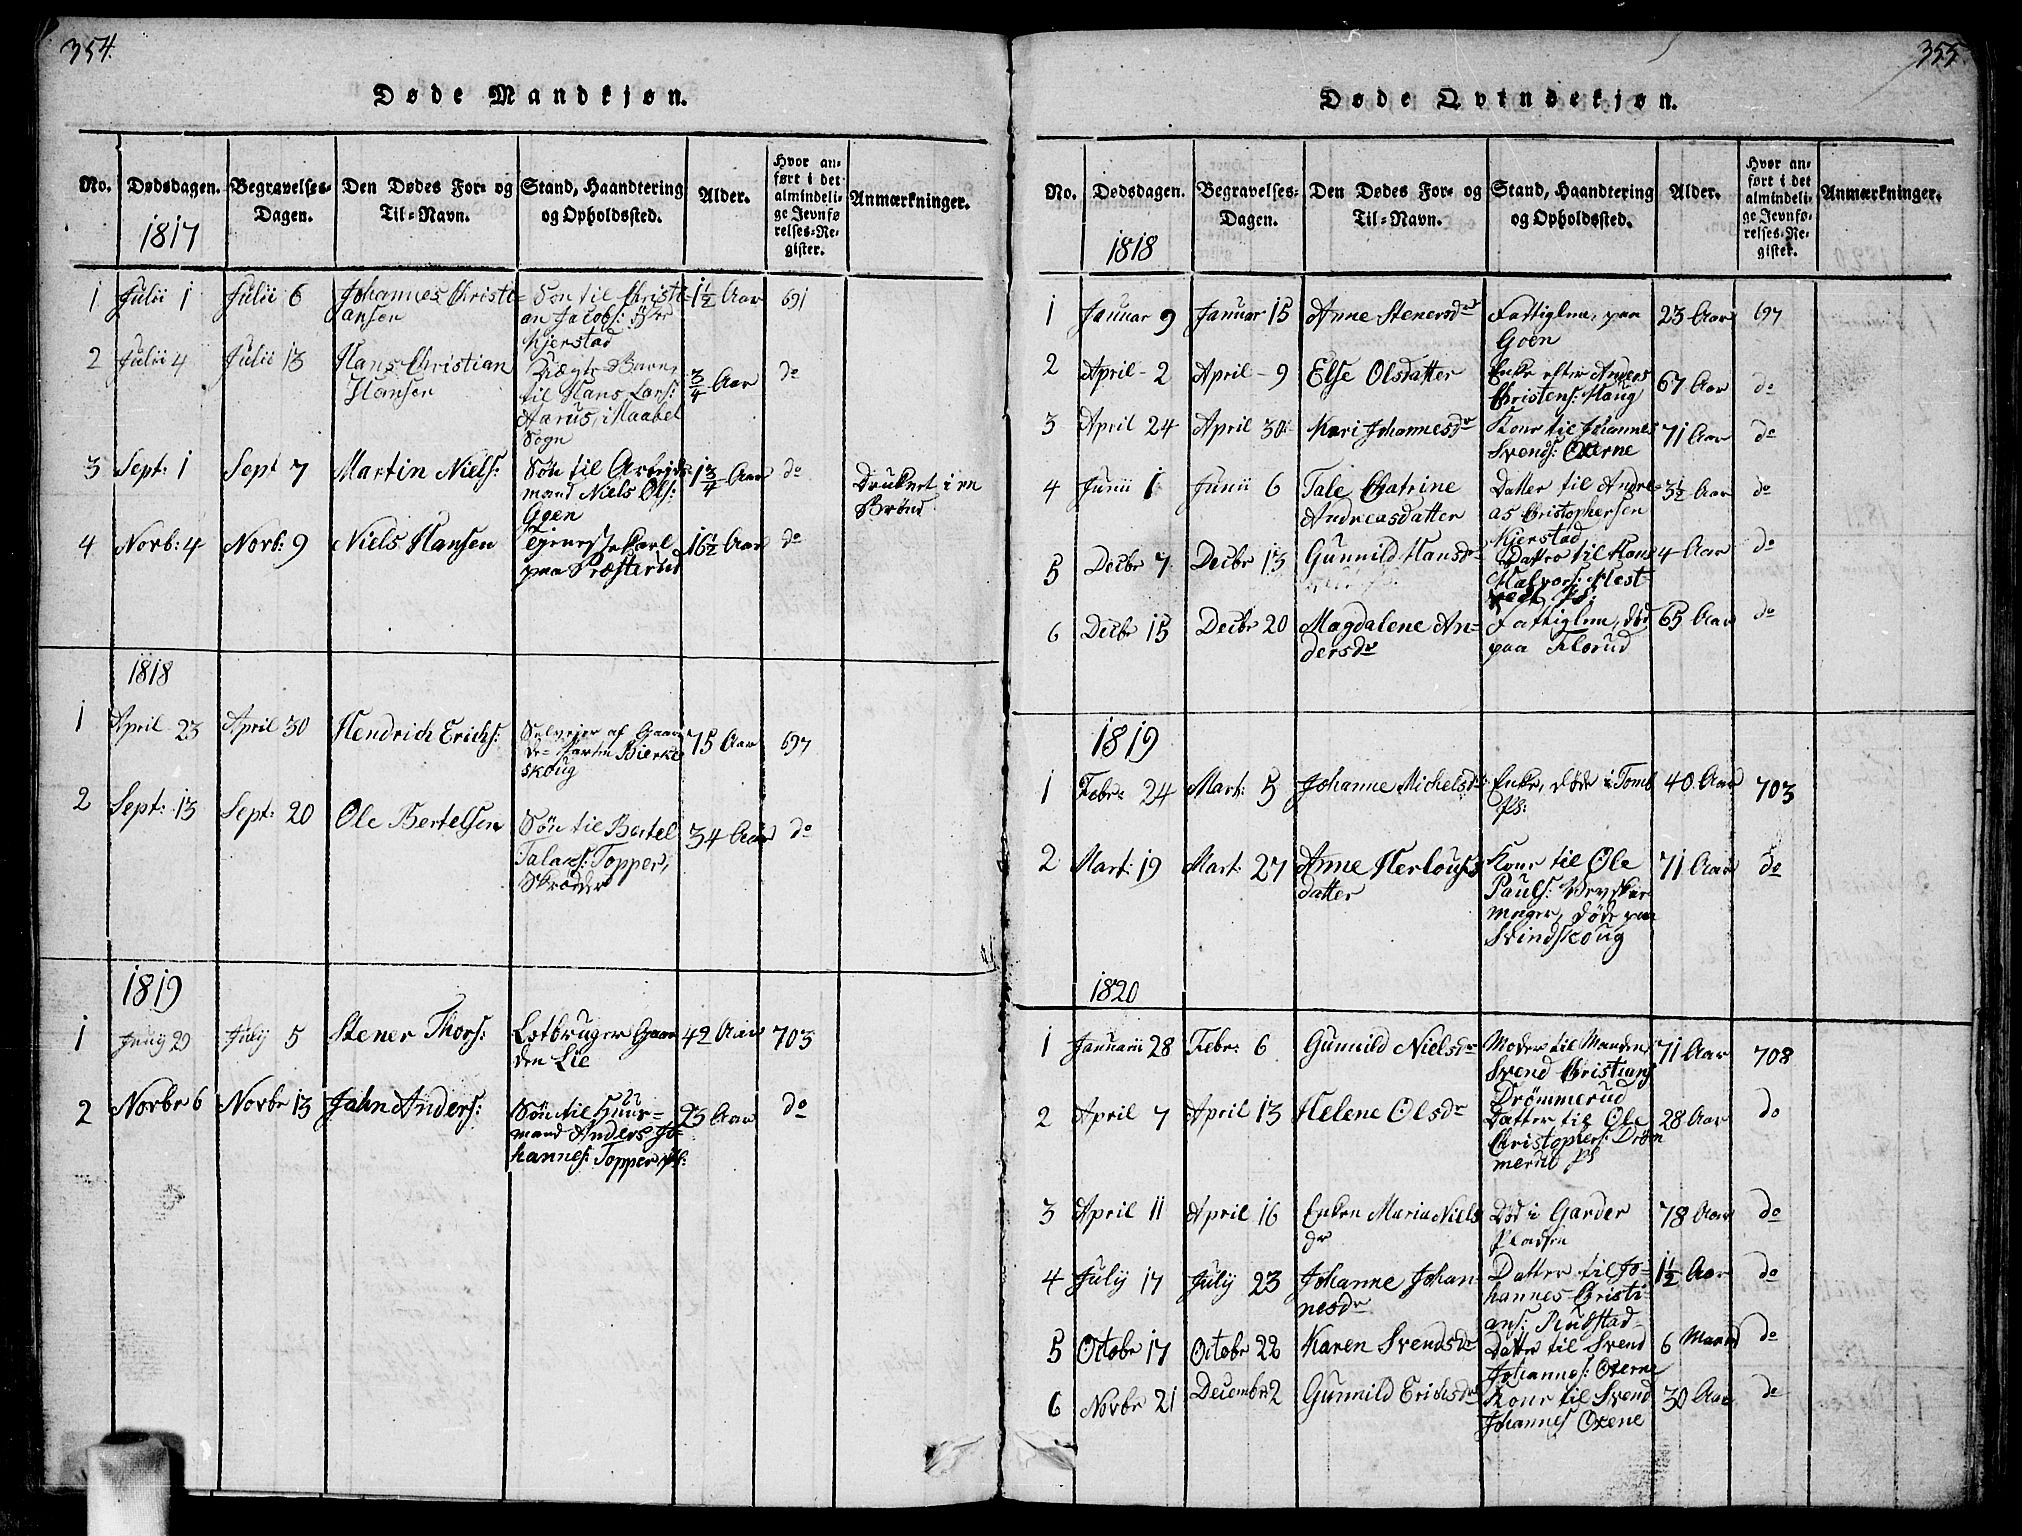 354.
Døde Mandkjøn.
No. Dødsdagen. Begravelses-Dagen. Den Dødes For- og Til-Navn. Stand, Haandtering og Opholdssted. Alder. Hvor anført i det almindelige Jevnførelses-Register. Anmærkninger.
1817
1 Julii 1 Julii 6 Johannes Christi- Søn til Christi- 1½ Aar 691
ansen an Jacobs:
Kjerstad
2 Julii 4 Julii 13 Hans Christian Barn ¾ Aar do
Hansen til Hans Lars:
Aarus, i Maabel
Sogn
3 Sept: 1 Sept 7 Martin Niels: Søn til Arbeids- 1¾ Aar do Druknet i en
mand Niels Ols: Brønd
Goen
4 Norb: 4 Norb: 9 Niels Hansen Tjenestekarl 16½ Aar do
paa Præsterud
1818
1 April 23 April 30 Hendrich Erichs: Selveier af Gaar- 75 Aar 697
de-Parten Bierke
skoug
2 Sept: 13 Sept: 20 Ole Bertelsen Søn til Bertel 34 Aar do
Talaks: Topper,
Skrædder
1819
1 July 5 Stener Thors: Lstbruger Gaar- 42 Aar 703
den Lie
2 Norbr 6 Norbr 13 Jahn Anders: Søn til Huus- 23 Aar do
mand Anders Jo-
hannes: Topper pls:
355
Døde Qvindekjøn.
No. Dødsdagen. Begravelses-Dagen. Den Dødes For- og Til-Navn. Stand, Haandtering og Opholdssted. Alder. Hvor anført i det almindelige Jevnførelses-Register. Anmærkninger.
1818
1 Januar 9 Januar 15 Anne Stenersdr Fattiglem, paa 23 Aar 697
Goen
2 April - 2 April - 9 Else Olsdatter Enke efter Anders 67 Aar do
Christens: Haug
3 April 24 April 30 Kari Johannesdr Kone til Johannes 71 Aar do
Svends: Oxerne
4 Junii 1 Junii 6 Tale Chatrine Datter til Andre- 3½ Aar do
Andreasdatter as Cristophersen
Kjerstad
5 Decbr 7 Decbr 13 Gunnild Hansdr Datter til Hans 4 Aar do
Halvors: Mest-
vedt Ps:
6 Decbr 15 Decbr 20 Magdalene An- Fattiglem, død 65 Aar do
dersdr paa Florud
1819
1 Febr: 24 Mart: 5 Johanne Michelsdr: Enke, døde i Tomb 40 Aar 703
Ps:
2 Mart: 19 Mart: 27 Anne Herloufs Kone til Ole 71 Aar do
datter Pauls:
mager, døde paa
Svindskoug
1820
1 Januarii 28 Febr: 6 Gunnild Nielsdr Moder til Manden 71 Aar 708
Svend Cristians
Drömmerud
2 April 7 April 13 Helene Olsdr Datter til Ole 28 Aar do
Christophers: Dröm
merud Ps
3 April 11 April 16 Enken Maria Niels Død i Garder 78 Aar do
dr Pladsen
4 July 17 July 23 Johanne Johan- Datter til Jo- 1½ Aar do
nesdr hannes Cristi-
ans: Rustad
5 Octobr 17 Octobr 22 Karen Svendsdr Datter til Svend 6 Maaned do
Johannes: Oxerne
6 Novbr 21 Decembr 2 Gunnild Erichsdr Kone til Svend 30 Aar do
Johannes Oxene